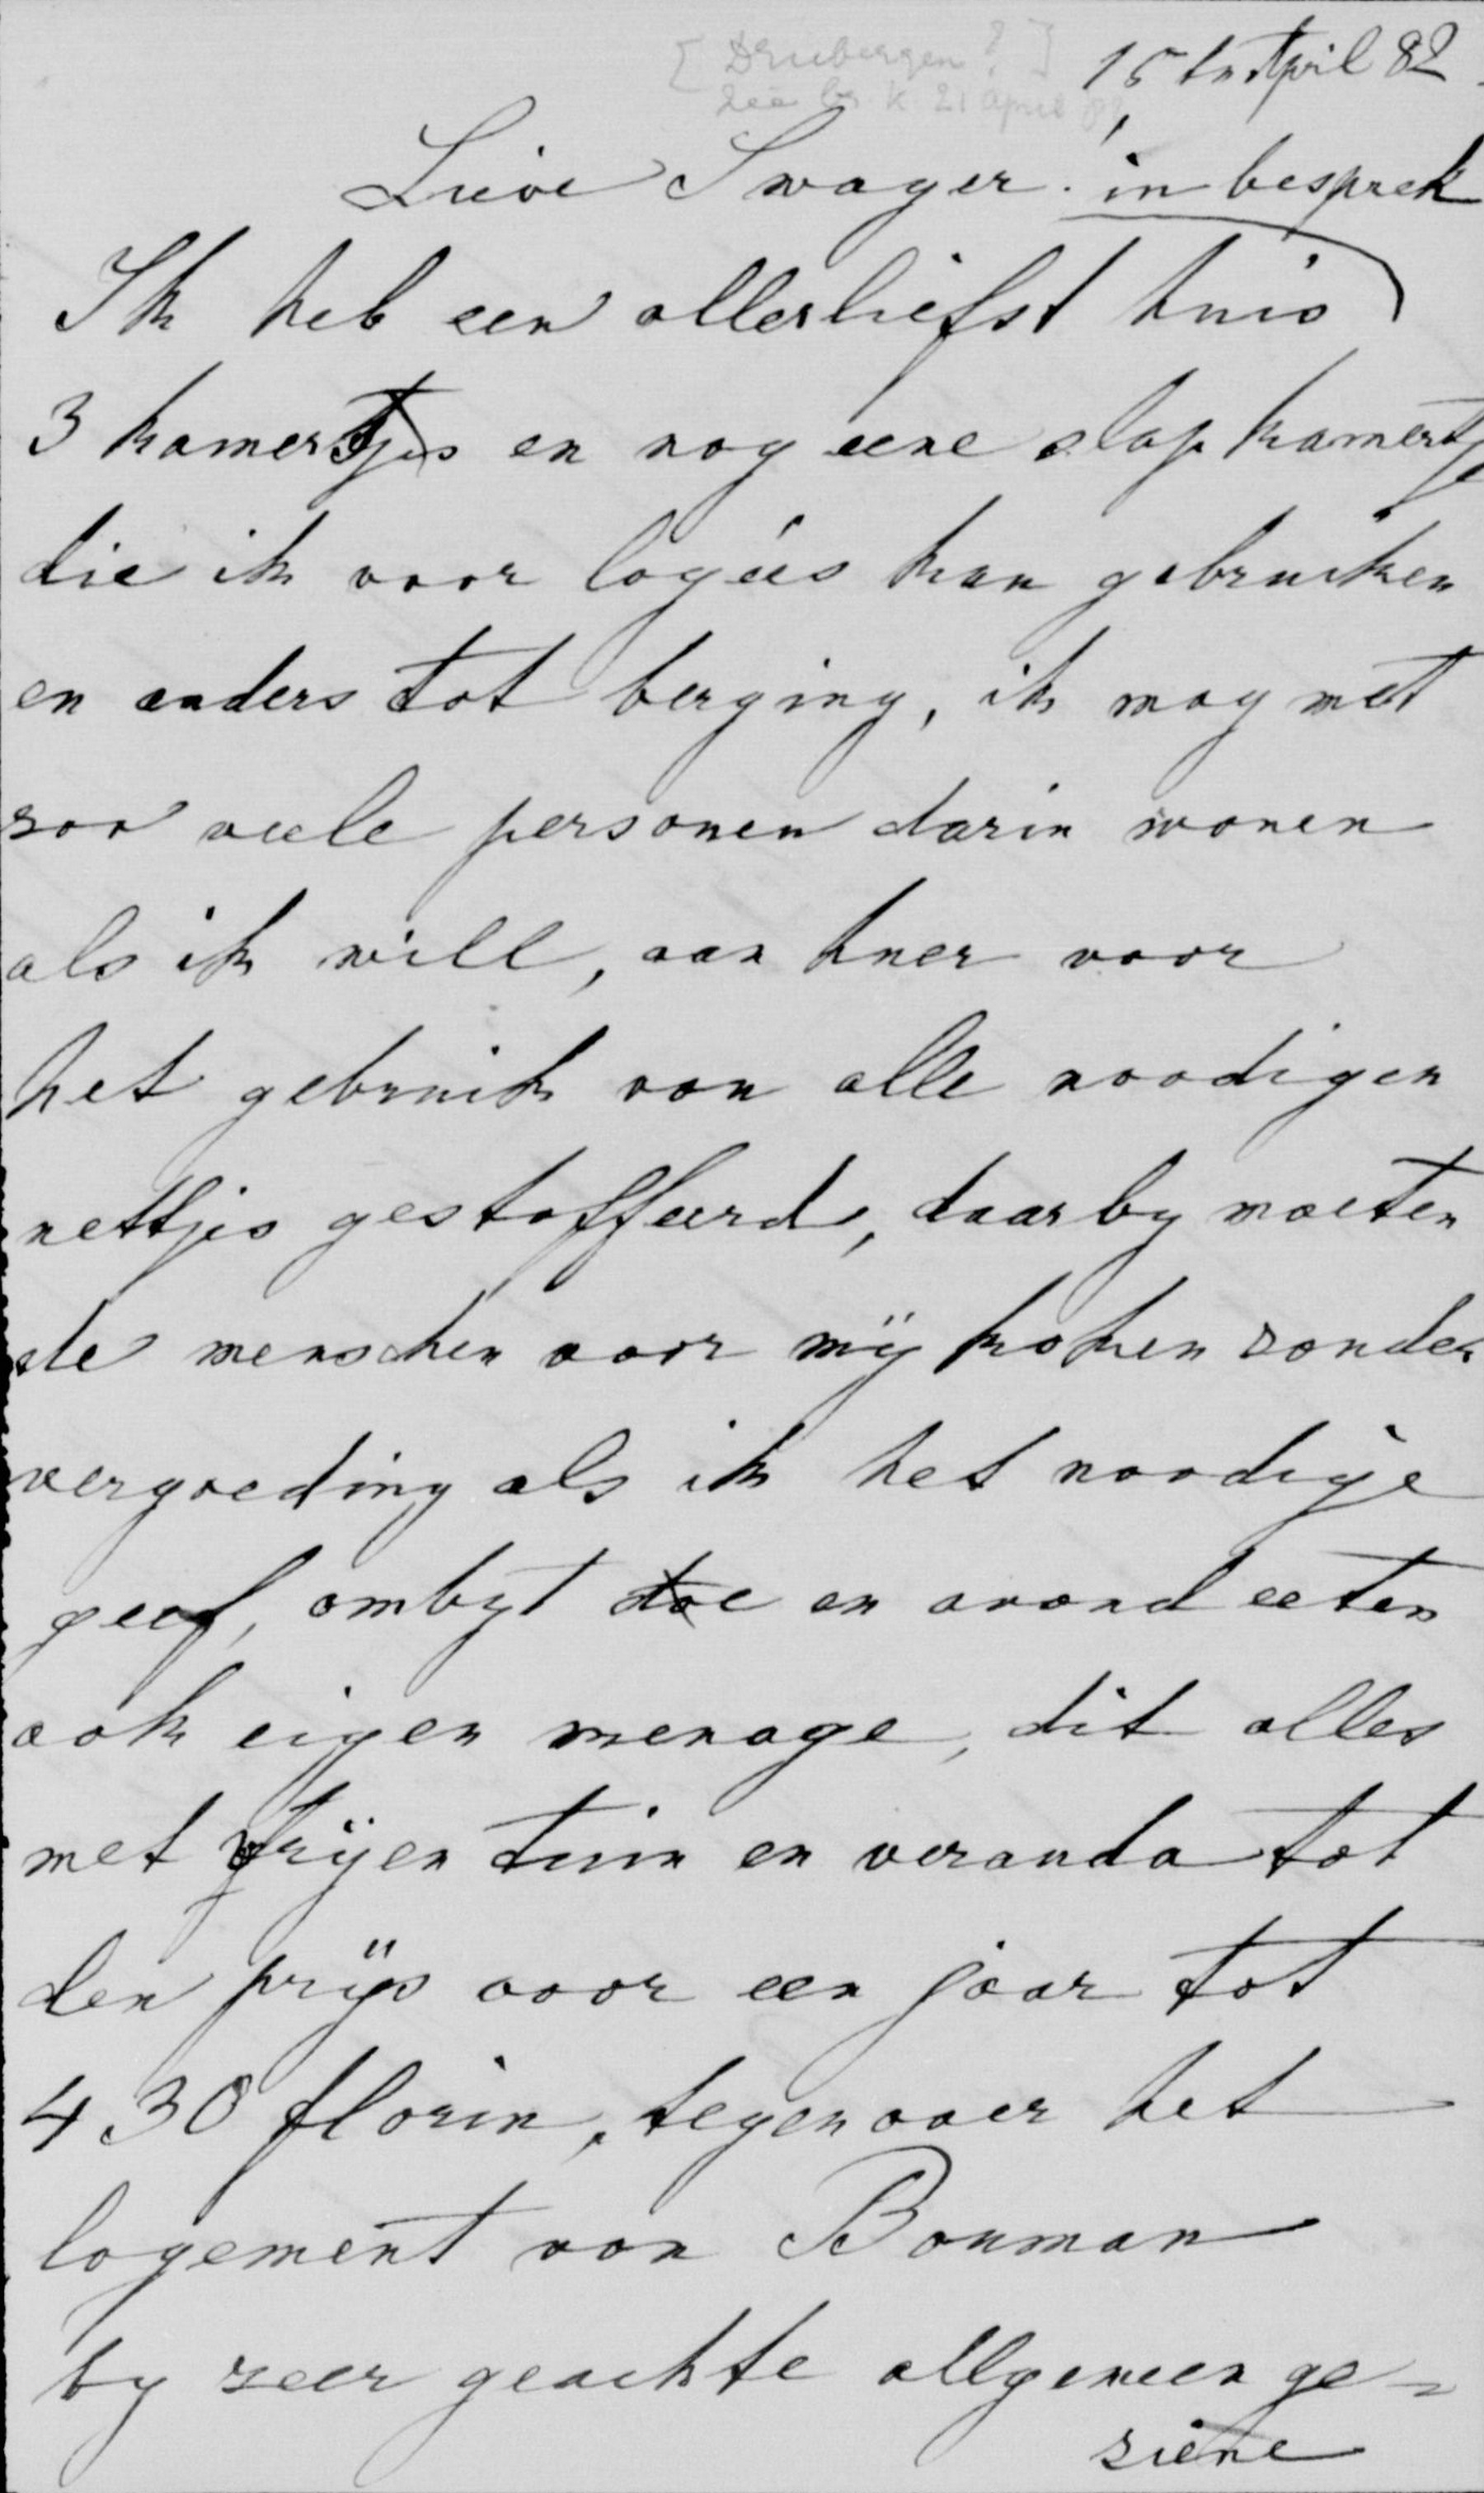 [Driebergen?]
15 tn April 82
zie br. k 21 april 82
Lieve Swager! in besprek
Ik heb een allerliefst huis
3 kamertjes en nog eene slap kamertje
die ik voor logées kan gebruiken
en anders tot berging, ik mag met
zoo veele personen darin wonen
als ik will, aan huer voor
het gebruik van alle noodigen
nettjes gestoffeerd, daarby moeten
de menschen voor mÿ koken zonder
vergoeding als ik het noodige
geef, ombyt en avond eeten
ook eigen menage, dit alles
met vrÿen tuin en veranda tot
den prÿs voor een jaar tot
430 florin, tegenover het
logement van Bouman
by zeer geachte allgemeen ge=
ziene